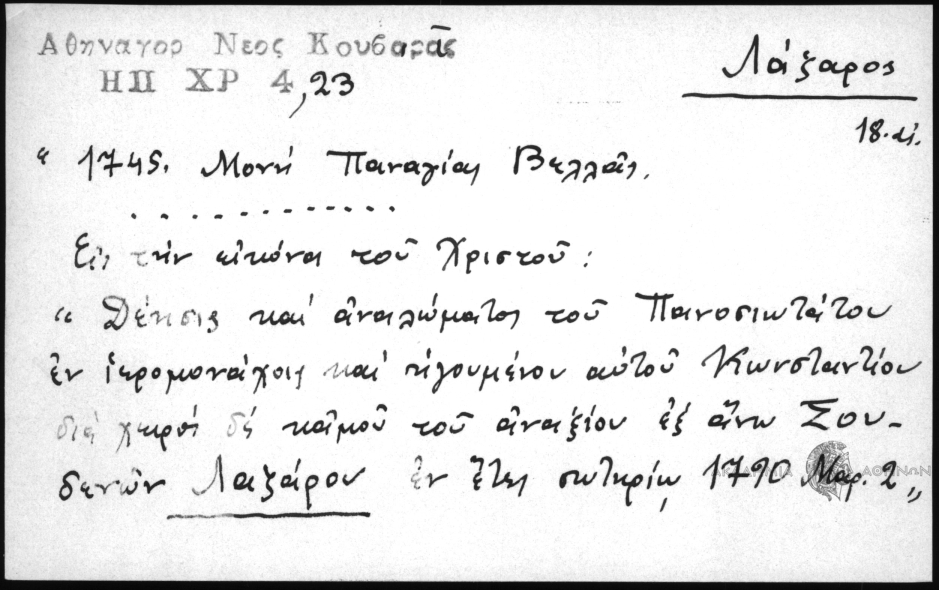 Αθηναγορ Νεος Κουβαρᾶς
ΗΠ ΧΡ 4,23
Λάζαρος
18. αἰ.
“ 1745. Μονή Παναγίας Βελλᾶς.
. . . . . . . . . . . . . .
Εἰς τήν εἰκόνα τοῦ Χριστοῦ :
“ Δέησις καί ἀναλώματος τοῦ Πανοσιωτάτου
ἐν ἱερομονάχοις καί ἡγουμένου αὐτοῦ Κωνσταντίου
διά χειρός δέ κἀμοῦ τοῦ ἀναξίου ἐξ ἄνω Σου-
δενῶν Λαζάρου ἐν ἔτει σωτηρίῳ 1790 Μαρ. 2 „
ΑΚΑΔΗΜΙΑ ΑΘΗΝΩΝ